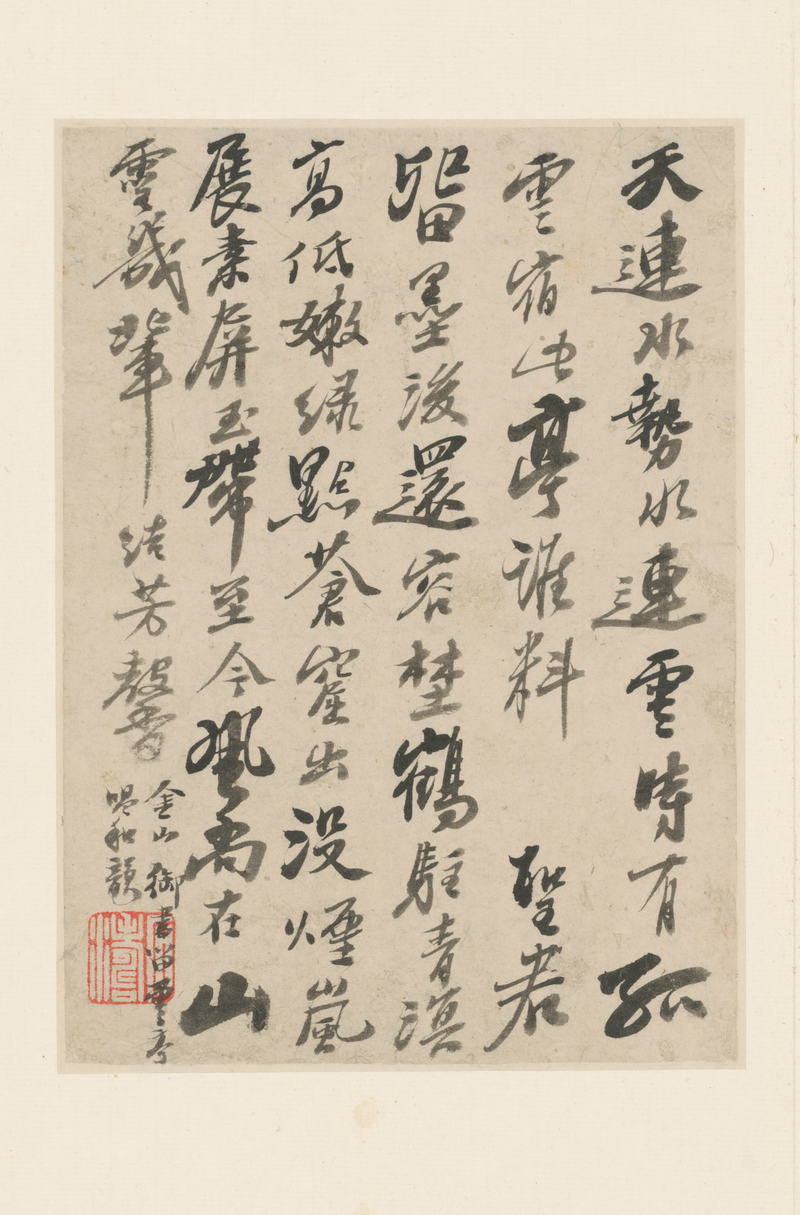 天連水勢水連雲時有孤
雲宿此亭誰料 聖君
留墨後還容埜鶴駐青溟
高低嫩綠點蒼崖出沒煙嵐
展素屏玉帶至今風尚在山
靈幾輩結芳馨
金山 御書留雲亭
和韻